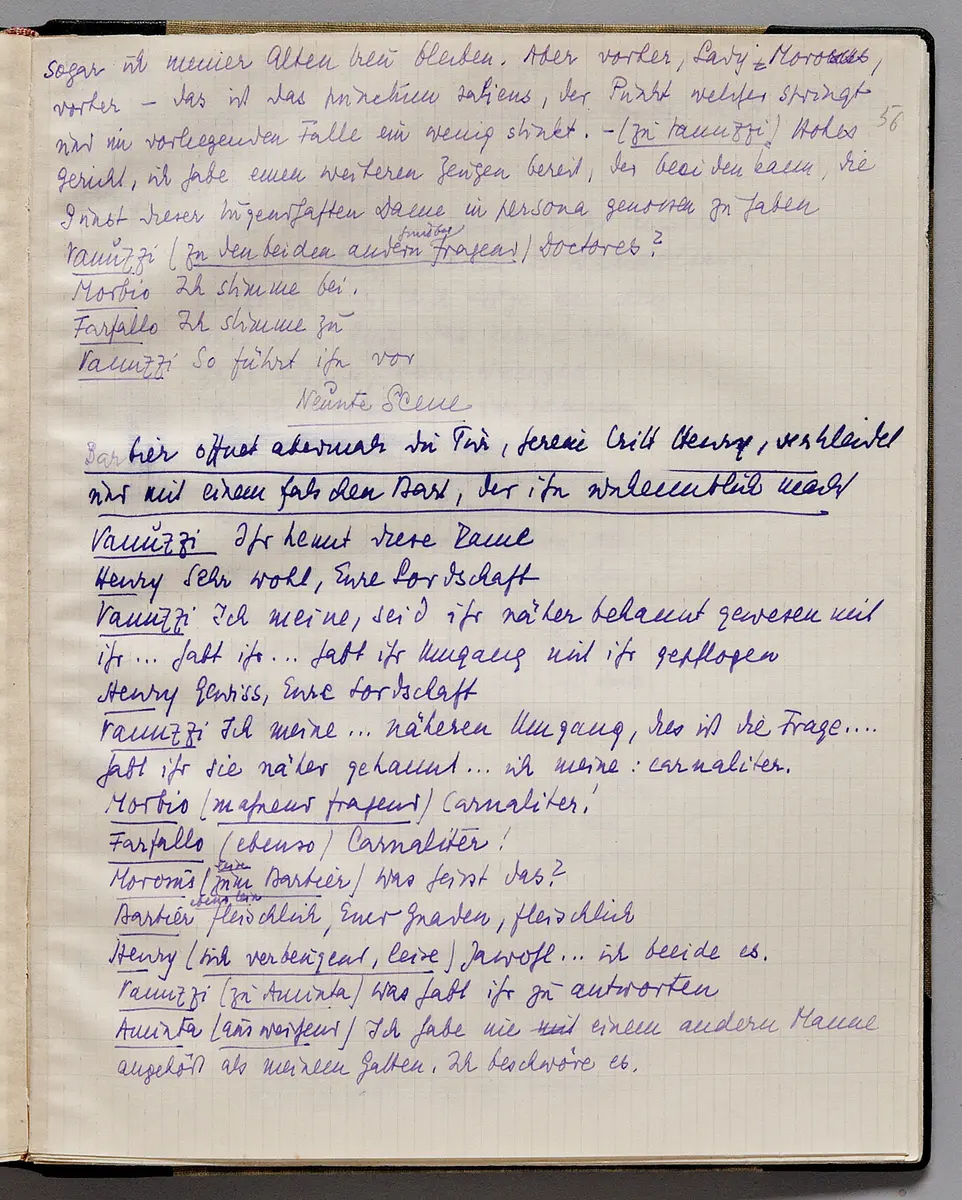 sogar ich meiner Alten treu bleiben. Aber vorher, Lady Morosus,
vorher – das ist das punctum saliens, der Punkt welcher springt
und im vorliegenden Falle ein wenig stinkt. – (zu Vanuzzi) Hohes
56
Gericht, ich habe einen weiteren Zeugen bereit, der beeiden kann, die
Gunst dieser tugendhaften Dame in persona genossen zu haben
Vanuzzi (zu den beiden andern fragend) Doctores?
Morbio Ich stimme bei.
Farfallo Ich stimme zu
Vanuzzi So führt ihn vor
Neunte Scene
Barbier öffnet abermals die Tür, herein tritt Henry, verkleidet
und mit einem falschen Bart, der ihn unkenntlich macht
Vanuzzi Ihr kennt diese Dame
Henry Sehr wohl, Eure Lordschaft
Vanuzzi Ich meine, seid ihr näher bekannt gewesen mit
ihr... habt ihr... habt ihr Umgang mit ihr gepflogen
Henry Gewiss, Eure Lordschaft
Vanuzzi Ich meine... näheren Umgang, dies ist die Frage....
habt ihr sie näher gekannt... ich meine: carnaliter.
Morbio (mahnend fragend) Carnaliter!
Farfallo (ebenso) Carnaliter!
leise
Morosus (zum Barbier) was heisst das?
ebenso leise
Barbier fleischlich, Euer Gnaden, fleischlich
Henry (sich verbeugend, leise) Jawohl... ich beeide es.
Vanuzzi (zu Aminta) was habt ihr zu antworten
Aminta (ausweichend) Ich habe nie mit einem andern Manne
angehört als meinem Gatten. Ich beschwöre es.